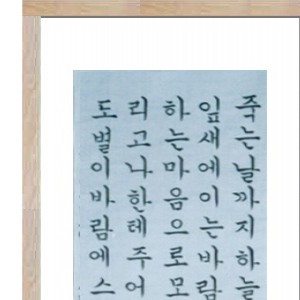 죽는날까지하늘
잎새에이는바람
하는마음으로모
리고나한테주어
도별이바람에스